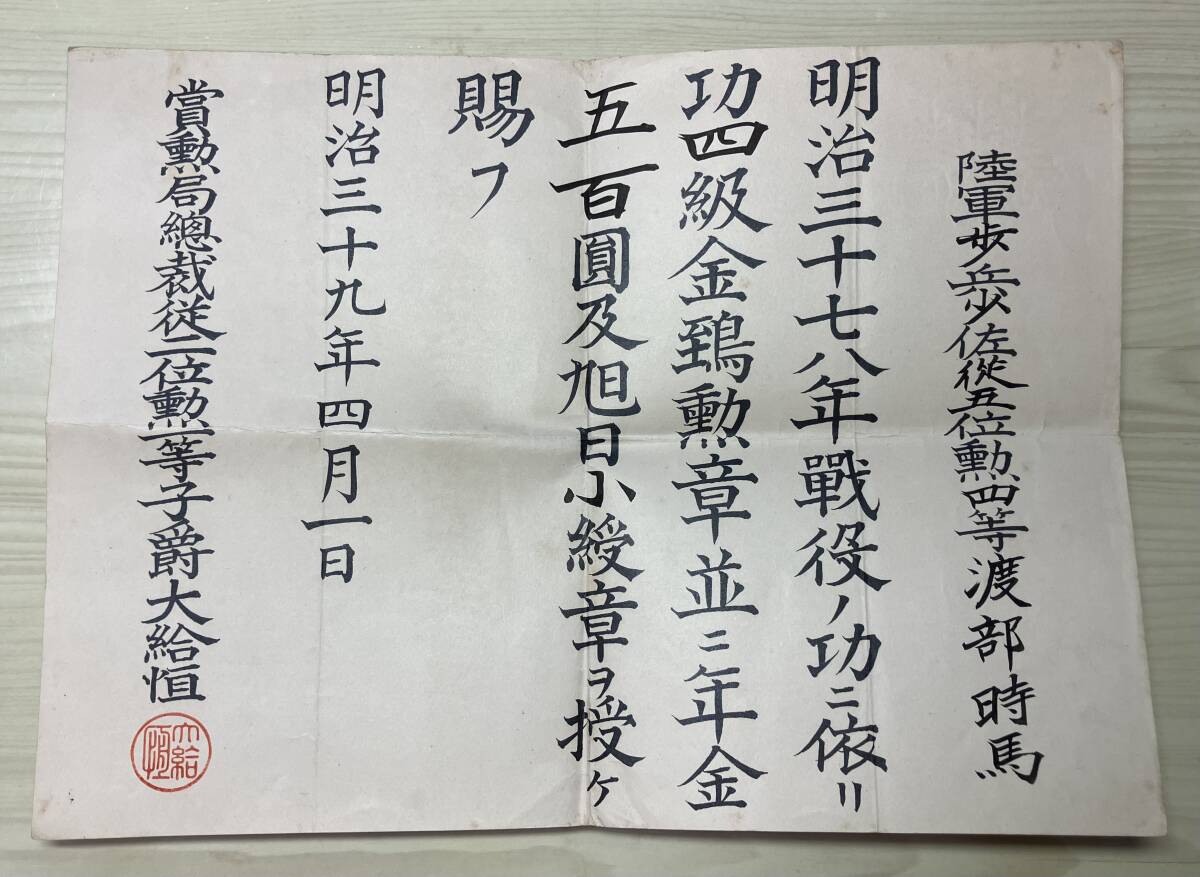 陸軍歩兵少佐從五位勲四等渡部時馬
明治三十七八年戰役ノ功ニ依リ
功四級金鵄勲章並ニ年金
五百圓及旭日小綬章ヲ授ケ
賜フ
明治三十九年四月一日
賞勲局總裁従二位勲一等子爵大給恒
大給恒